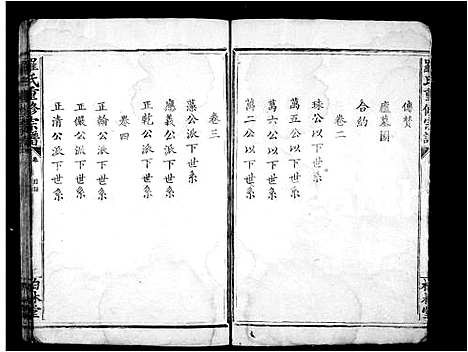 羅氏重修宗譜
傳贊
廬墓圖
合約
卷二
球公以下世系
萬五公以下世系
萬六公以下世系
萬二公以下世系
卷三
藻公派下世系
應義公派下世系
正乾公派下世系
卷四
正翰公派下世系
正儀公派下世系
正清公派下世系
羅氏重修宗譜
卷
目錄
柏林堂